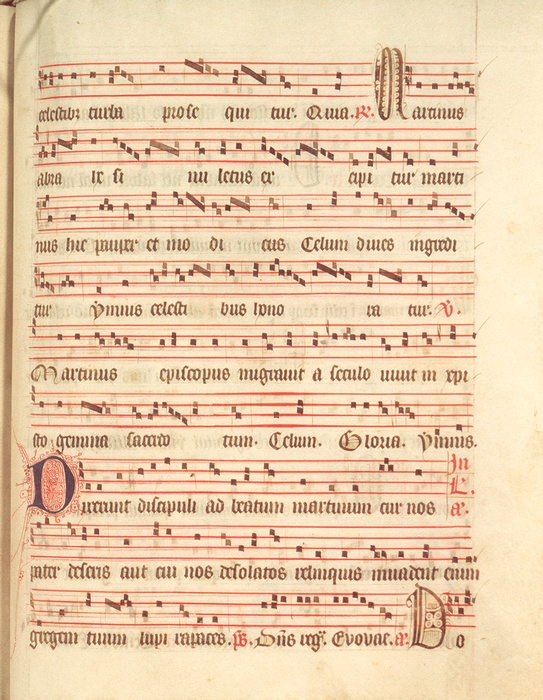 celestibz turba prose qui tur. Quia. R. Martinus
abra he si nu letus ex cipi tur marti
nus hic pauper et mo di cus Celum diues ingredi
tur Ymnis celesti bus hono ra tur. V.
Martinus episcopus migrauit a seculo uiuit in xpi
sto gemma sacerdo tum. Celum. Gloria. Ymnis.
In
L.
Dixerunt discipuli ad beatum martinum cur nos æ.
pater deseris aut cui nos desolatos relinquis inuadent enim
gregem tuum lupi rapaces. ps. Dns reg. Evovae. a. Do